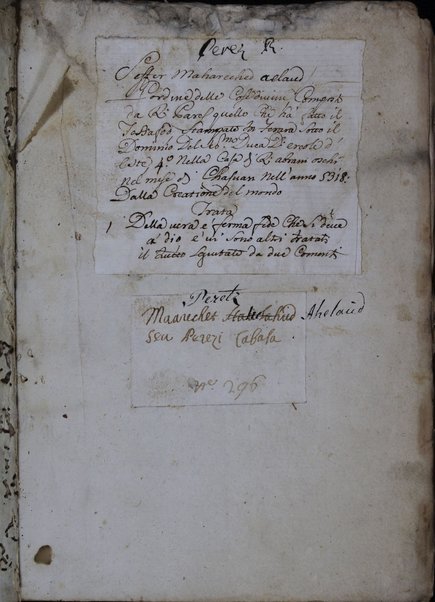 Perez R.
Seffer Mahareched aelaud
l'ordine delle Cose divine Compost
da R. Pares quello che ha fatto il
Stampato In Ferara Sotto il
Dominio del Duca d'
Este 4º Nella Casa di R. abram
nel mese di Chasuan nell'anno 5318
Dalla Creatione del mondo
Trata
1 Della vera è ferma fede che si deve
a dio e vi sono altri tratati
il tutto seguitato da due Coment
Peretz
Maarechet Ahelaud
seu Perezi Cabala
nº 296